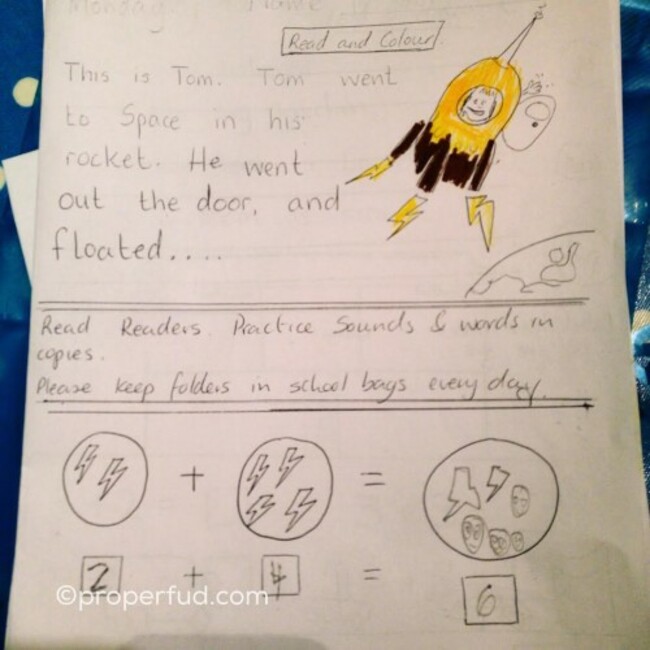 Monday Name
Read and Colour
This is Tom. Tom went
to Space in his
rocket. He went
out the door, and
floated....
Read Readers. Practice Sounds & words in
copies.
Please keep folders in school bags every day.
+ =
2 + 4 = 6
©properfud.com